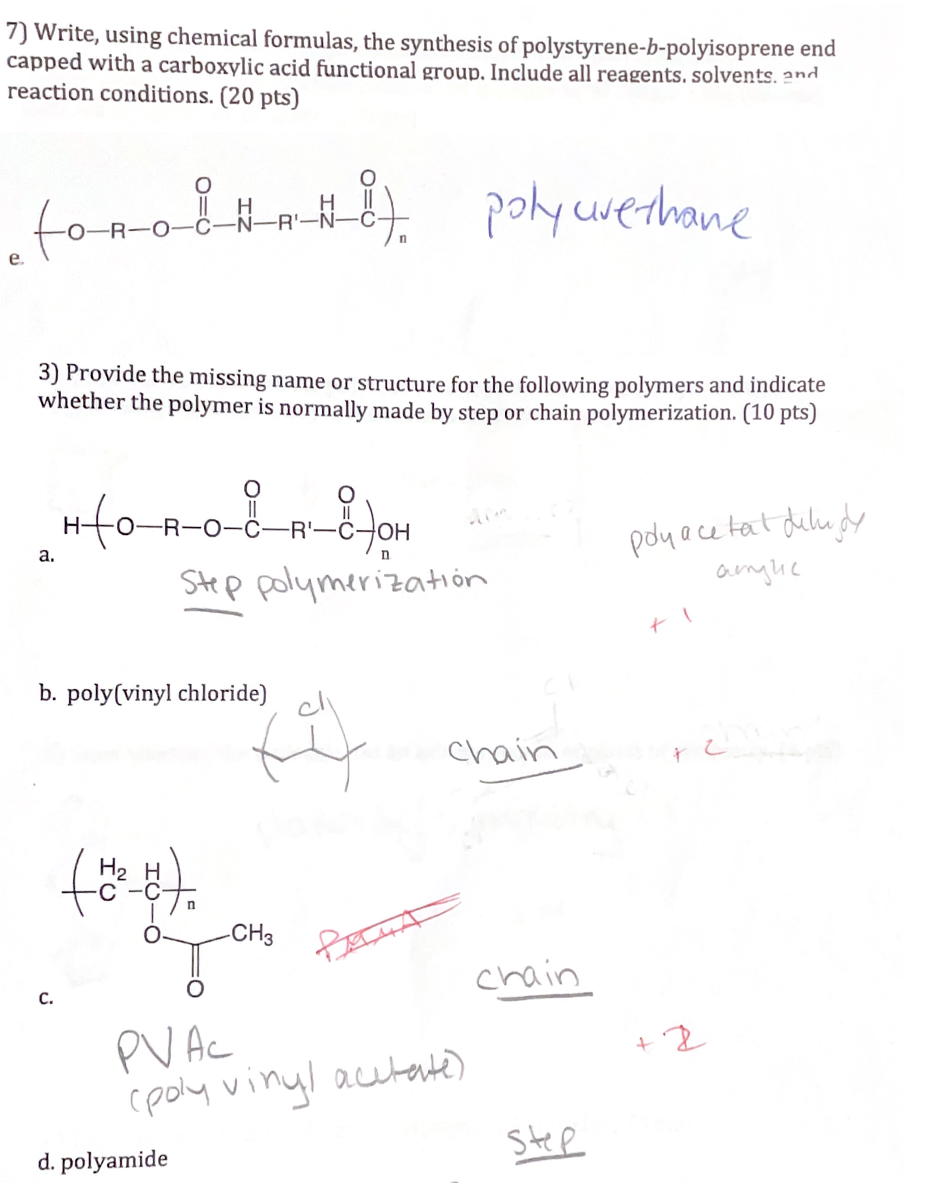 7) Write, using chemical formulas, the synthesis of polystyrene-b-polyisoprene end
capped with a carboxylic acid functional group. Include all reagents, solvents, and
reaction conditions. (20 pts)
O O
H H
O—R—O—C—N—R'—N—C
n
e.
polyurethane
3) Provide the missing name or structure for the following polymers and indicate
whether the polymer is normally made by step or chain polymerization. (10 pts)
O O
H O—R—O—C—R'—C OH
n
a.
Step polymerization
+1
b. poly(vinyl chloride)
Cl
Chain
+2
H₂ H
C–C
n
O CH₃
O
c.
chain
PVAc
(poly vinyl acetate)
+2
Step
d. polyamide